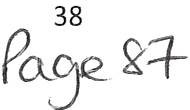 38
Page 87